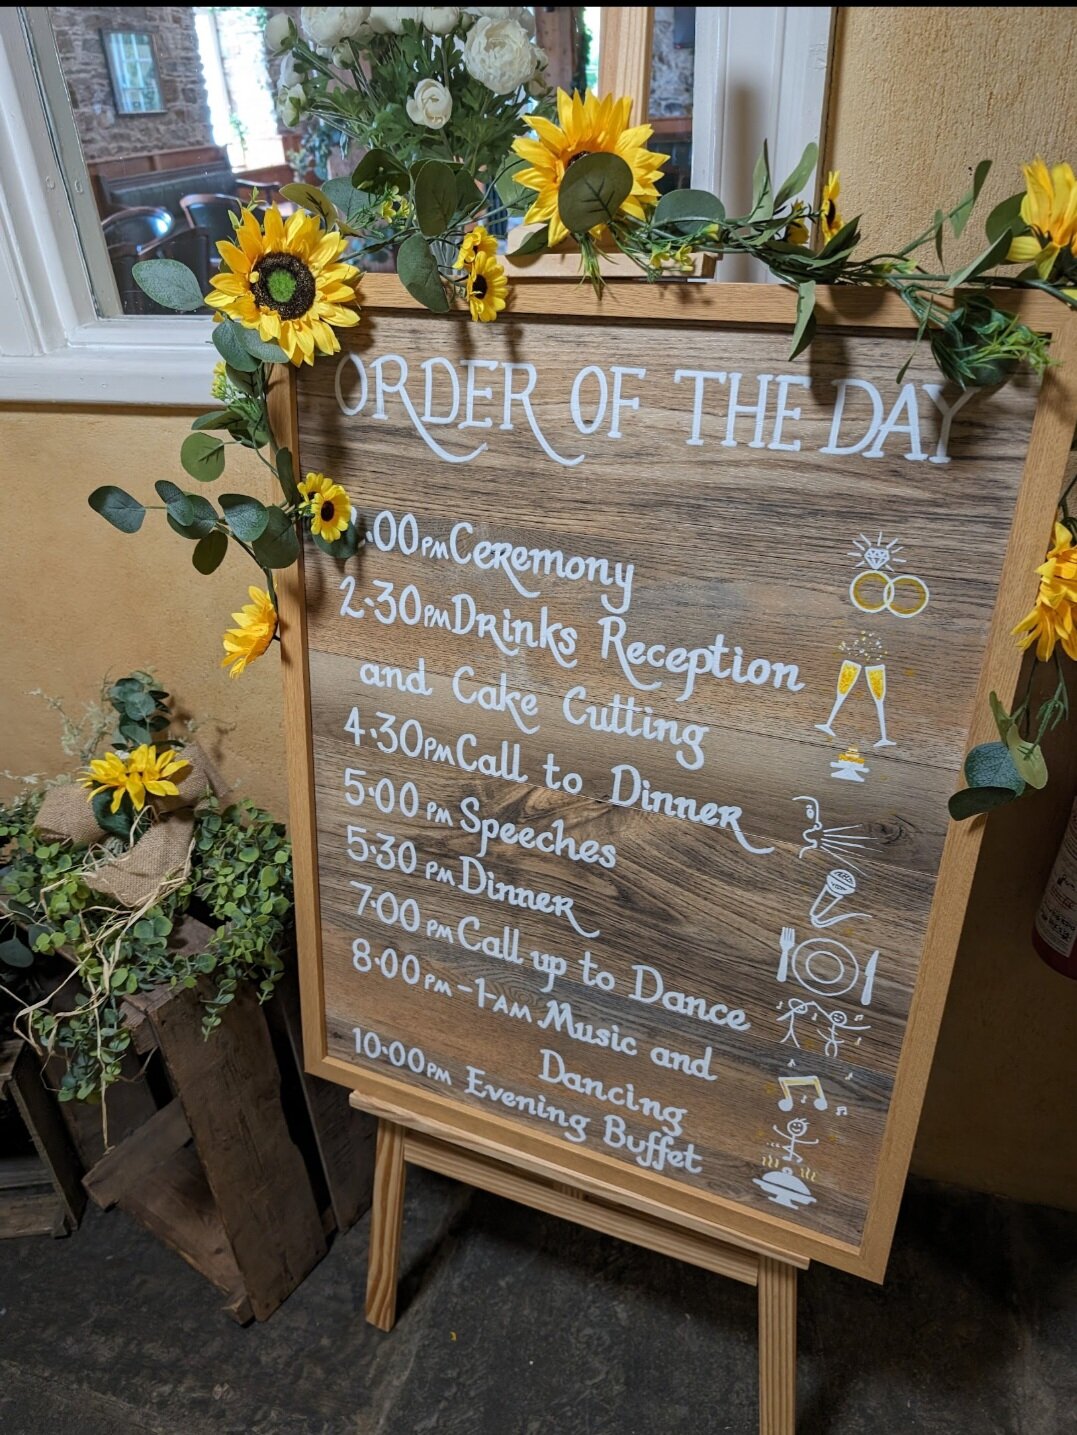 ORDER OF THE DAY
.00PM Ceremony
2.30PM Drinks Reception
and Cake Cutting
4.30PM Call to Dinner
5.00 PM Speeches
5.30 PM Dinner
7.00 PM Call up to Dance
8.00 PM - 1 AM Music and
Dancing
10.00PM Evening Buffet